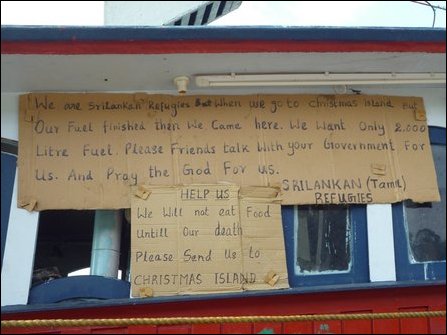 We are Srilankan Refugies But When we go to christmas island out
Our Fuel finished then We Came here. We Want Only 2.000
Litre Fuel. Please Friends talk With your Government For
Us. And Pray the God For us.
SRILANKAN (Tamil)
REFUGIES
HELP US
We Will not eat Food
Untill Our death
Please Send Us to
CHRISTMAS ISLAND